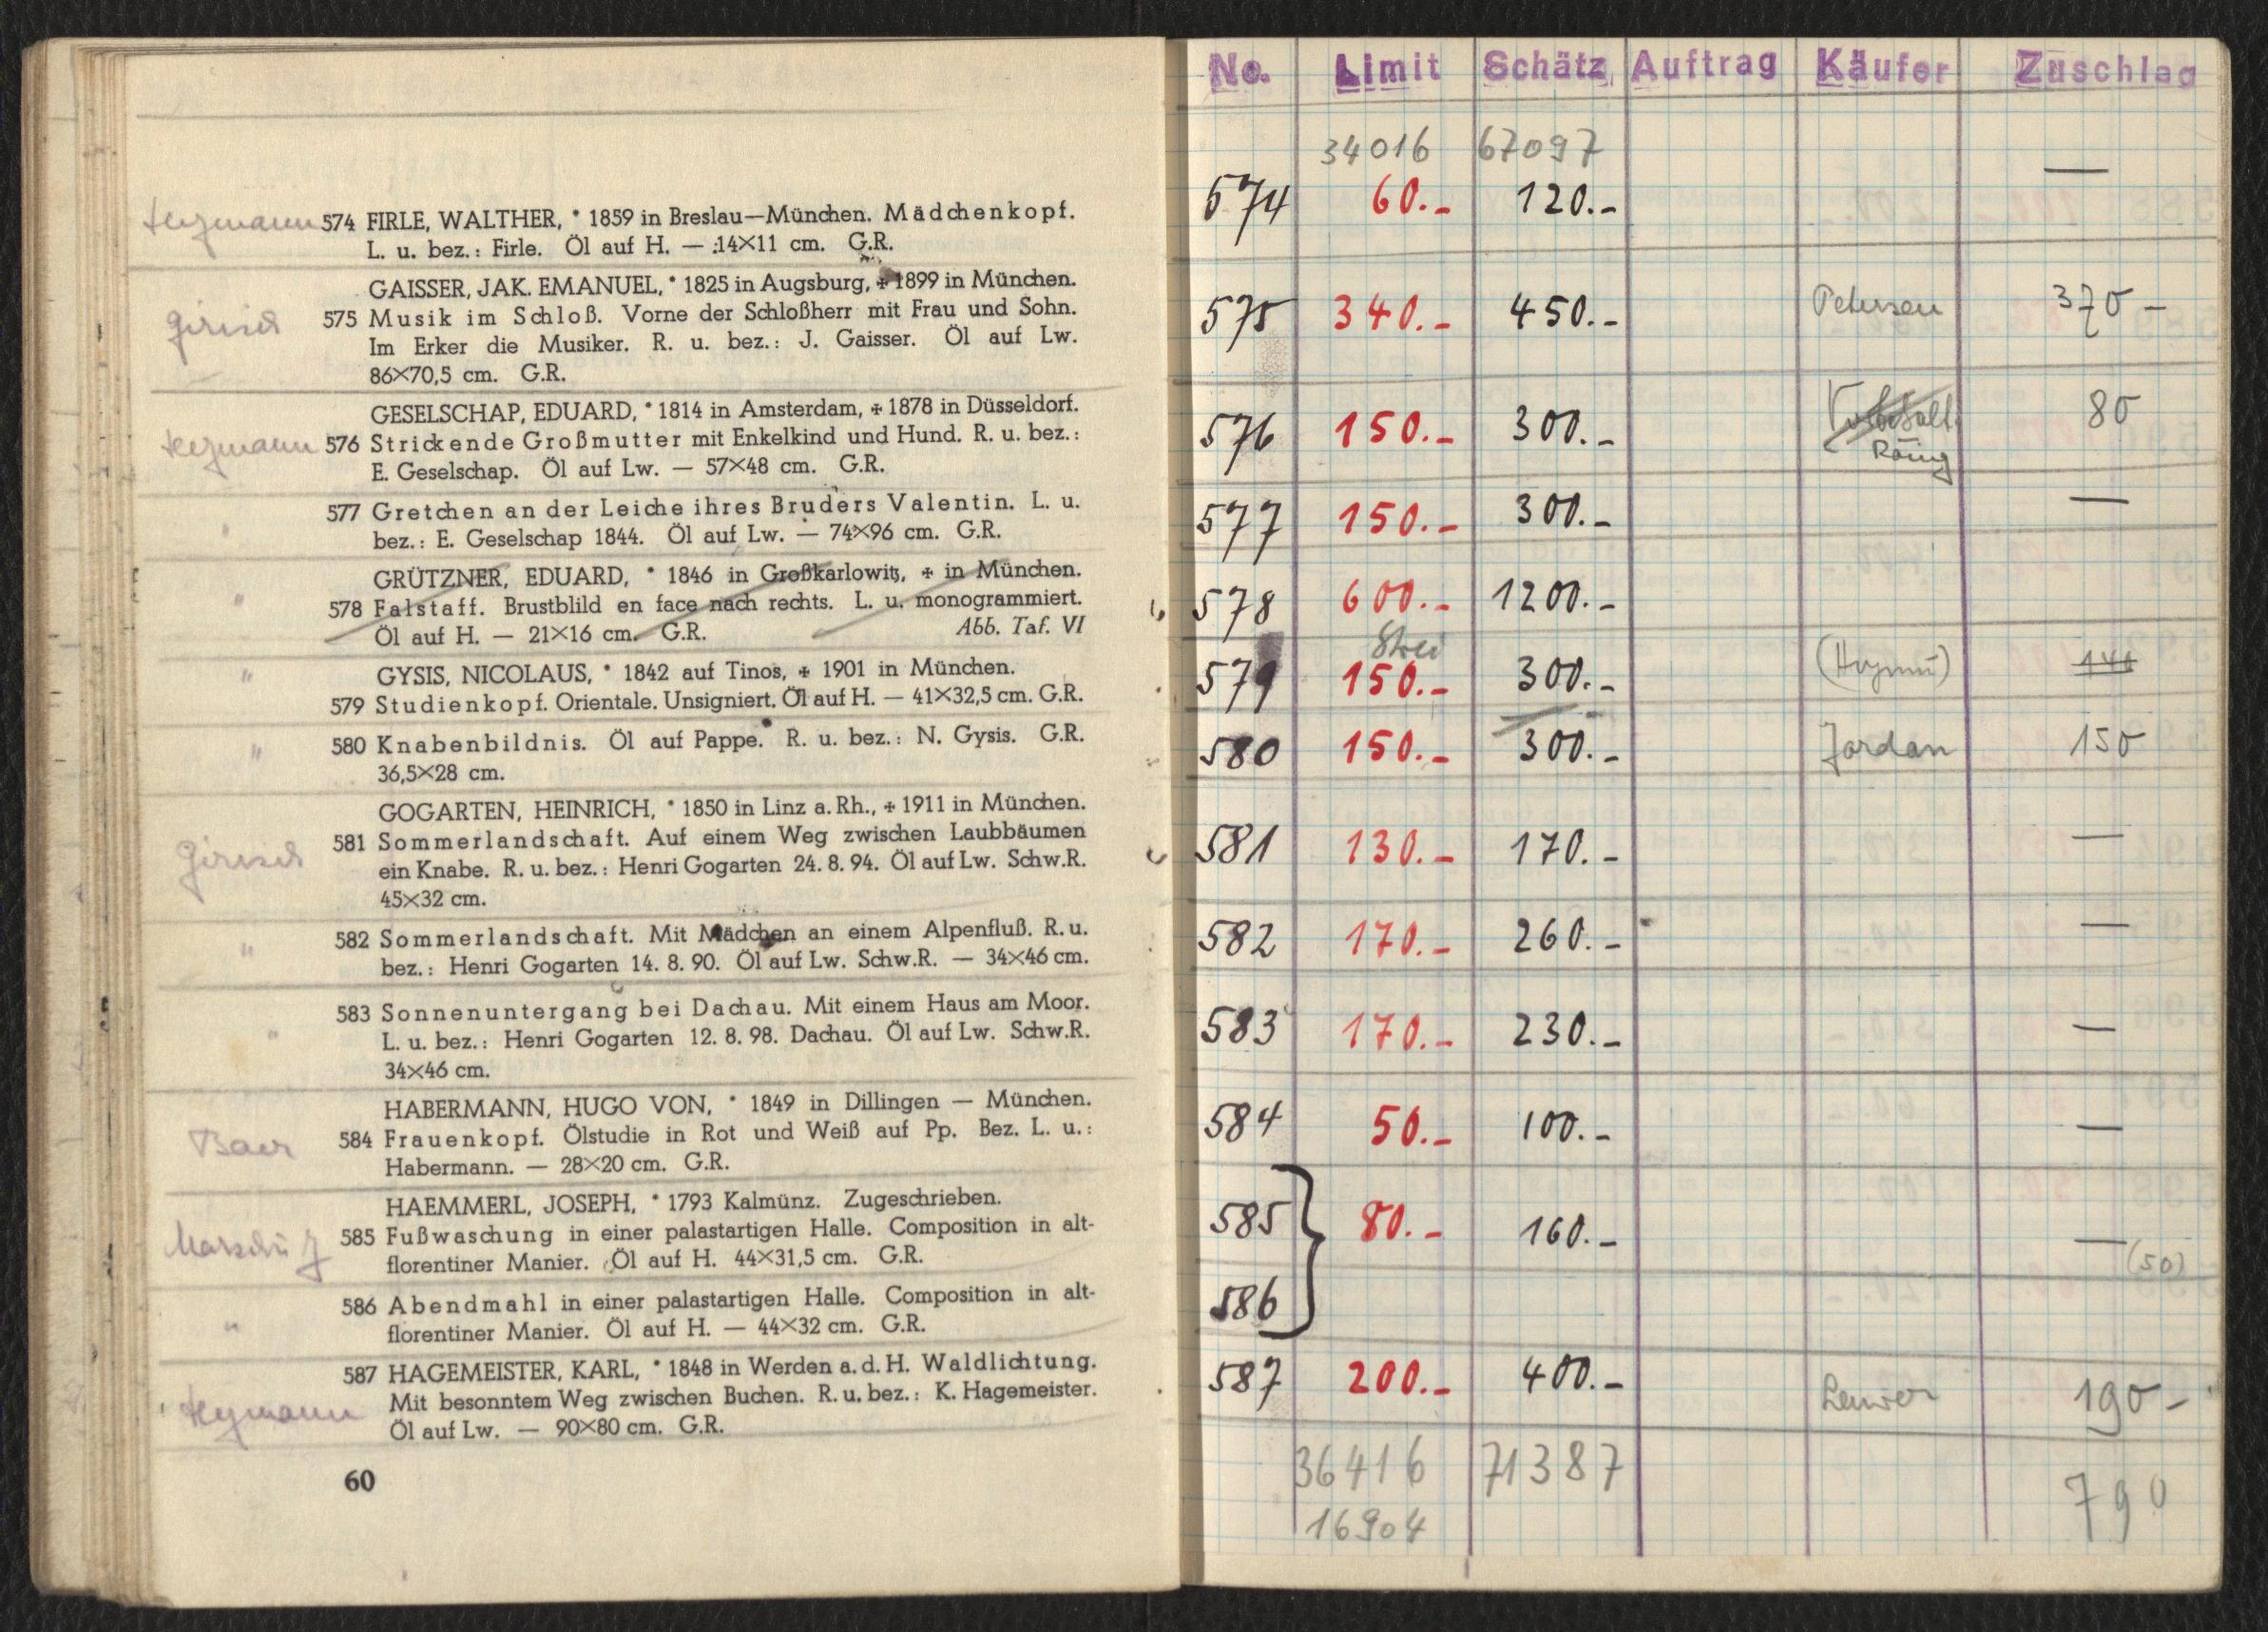 574 FIRLE, WALTHER, * 1859 in Breslau—München. Mädchenkopf.
L. u. bez.: Firle. Öl auf H. — 14×11 cm. G.R.
GAISSER, JAK. EMANUEL, * 1825 in Augsburg, ✠ 1899 in München.
575 Musik im Schloß. Vorne der Schloßherr mit Frau und Sohn.
Im Erker die Musiker. R. u. bez.: J. Gaisser. Öl auf Lw.
86×70,5 cm. G.R.
GESELSCHAP, EDUARD, * 1814 in Amsterdam, ✠ 1878 in Düsseldorf.
576 Strickende Großmutter mit Enkelkind und Hund. R. u. bez.:
E. Geselschap. Öl auf Lw. — 57×48 cm. G.R.
577 Gretchen an der Leiche ihres Bruders Valentin. L. u.
bez.: E. Geselschap 1844. Öl auf Lw. — 74×96 cm. G.R.
"
GRÜTZNER, EDUARD, * 1846 in Großkarlowitz, ✠ in München.
578 Falstaff. Brustblild en face nach rechts. L. u. monogrammiert.
"
Öl auf H. — 21×16 cm. G.R. Abb. Taf. VI
GYSIS, NICOLAUS, * 1842 auf Tinos, ✠ 1901 in München.
"
579 Studienkopf. Orientale. Unsigniert. Öl auf H. — 41×32,5 cm. G.R.
" 580 Knabenbildnis. Öl auf Pappe. R. u. bez.: N. Gysis. G.R.
36,5×28 cm.
GOGARTEN, HEINRICH, * 1850 in Linz a. Rh., ✠ 1911 in München.
581 Sommerlandschaft. Auf einem Weg zwischen Laubbäumen
ein Knabe. R. u. bez.: Henri Gogarten 24. 8. 94. Öl auf Lw. Schw.R.
45×32 cm.
" 582 Sommerlandschaft. Mit Mädchen an einem Alpenfluß. R. u.
bez.: Henri Gogarten 14. 8. 90. Öl auf Lw. Schw.R. — 34×46 cm.
583 Sonnenuntergang bei Dachau. Mit einem Haus am Moor.
" L. u. bez.: Henri Gogarten 12. 8. 98. Dachau. Öl auf Lw. Schw.R.
34×46 cm.
HABERMANN, HUGO VON, * 1849 in Dillingen — München.
Baer 584 Frauenkopf. Ölstudie in Rot und Weiß auf Pp. Bez. L. u.:
Habermann. — 28×20 cm. G.R.
HAEMMERL, JOSEPH, * 1793 Kalmünz. Zugeschrieben.
585 Fußwaschung in einer palastartigen Halle. Composition in alt-
florentiner Manier. Öl auf H. 44×31,5 cm. G.R.
586 Abendmahl in einer palastartigen Halle. Composition in alt-
" florentiner Manier. Öl auf H. — 44×32 cm. G.R.
587 HAGEMEISTER, KARL, * 1848 in Werden a. d. H. Waldlichtung.
Mit besonntem Weg zwischen Buchen. R. u. bez.: K. Hagemeister.
Heymann Öl auf Lw. — 90×80 cm. G.R.
60
No. Limit Schätz. Auftrag Käufer Zuschlag
34016 67097
574 60.- 120.- —
575 340.- 450.- Petersen 370 -
576 150.- 300.- 80
577 150.- 300.- —
578 600.- 1200.-
579 150.- 300.-
580 150.- 300.- Jordan 150
581 130.- 170.- —
582 170.- 260.- —
583 170.- 230.- —
584 50.- 100.- —
585 80.- 160.- — (50)
586
587 200.- 400.- 190 -
36416 71387 790
16904